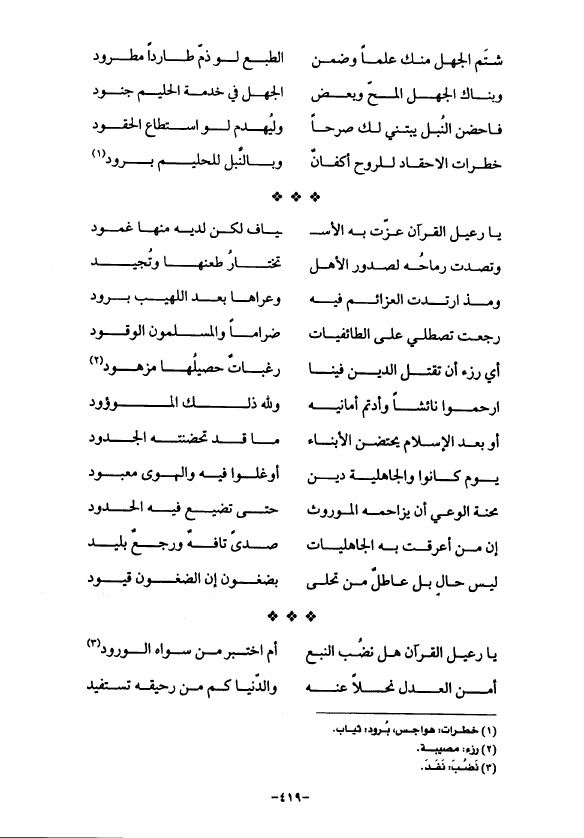 شتَم الجهل منك علماً وضمن الطبع لو ذمّ طارداً مطرود
وبناك الجهل الملحّ وبعض الجهل في خدمة الحليم جنود
فاحضن النُبل يبتني لك صرحاً وليُهدم لو استطاع الحقود
خطرات الاحقاد للروح أكفانٌ وبالنّبل للحليم برود(١)
❖ ❖ ❖
يا رعيل القرآن عزّت به الأسـ ـياف لكن لديه منها غمود
وتصدت رماحُه لصدور الأهل تختارُ طعنها وتُجيد
ومذ ارتدت العزائم فيه وعراها بعد اللهيب برود
رجعت تصطلي على الطائفيات ضراماً والمسلمون الوقود
أي رزء أن تقتل الدين فينا رغباتٌ حصيلُها مزهود(٢)
ارحموا ناشئاً وأدتم أمانيه ولله ذلك الموؤود
أو بعد الإسلام يحتضن الأبناء ما قد تحضنته الجدود
يوم كانوا والجاهلية دين أوغلوا فيه والهوى معبود
محنة الوعي أن يزاحمه الموروث حتى تضيع فيه الحدود
إن من أعرقت به الجاهليات صدىً تافهٌ ورجعٌ بليد
ليس حالٍ بل عاطلٌ من تحلى بضغون إن الضغون قيود
❖ ❖ ❖
يا رعيل القرآن هل نضُب النبع أم اختير من سواه الورود(٣)
أمن العدل نحلاً عنه والدّنيا كم من رحيقه تستفيد
(١) خطرات: هواجس، بُرود: ثياب.
(٢) رزء: مصيبة.
(٣) نَضُبَ: نَفَدَ.
-٤١٩-